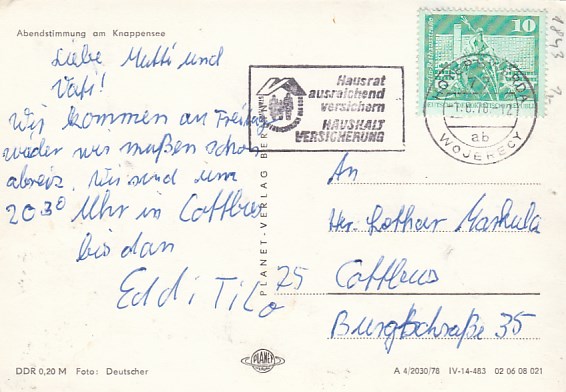 Abendstimmung am Knappensee
Liebe Mutti und
Vati!
Wir kommen am Freitag
wieder wir mußen schon
abreis. Wir sind um
20 30 Uhr in Cottbus
bis dan
Eddi Tilo
PLANET-VERLAG BER
Hausrat
ausreichend
versichern
HAUSHALT
VERSICHERUNG
10
HOYERSWERDA
ab
WOJERECY
1843
An
Her. Lothar
75 Cottbus
Burgstraße 35
DDR 0,20 M Foto: Deutscher
PLANET
A 4/2030/78 IV-14-483 02 06 08 021